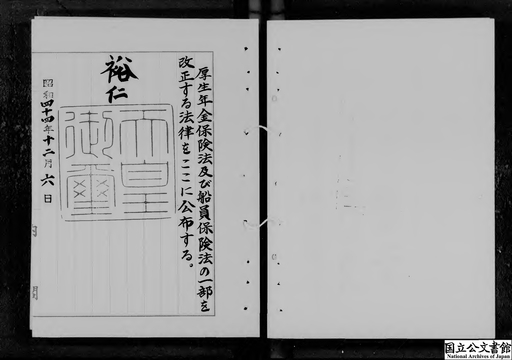 厚生年金保険法及び船員保険法の一部を
改正する法律をここに公布する。
裕仁
天皇
御璽
昭和四十四年十二月六日
国立公文書館
National Archives of Japan